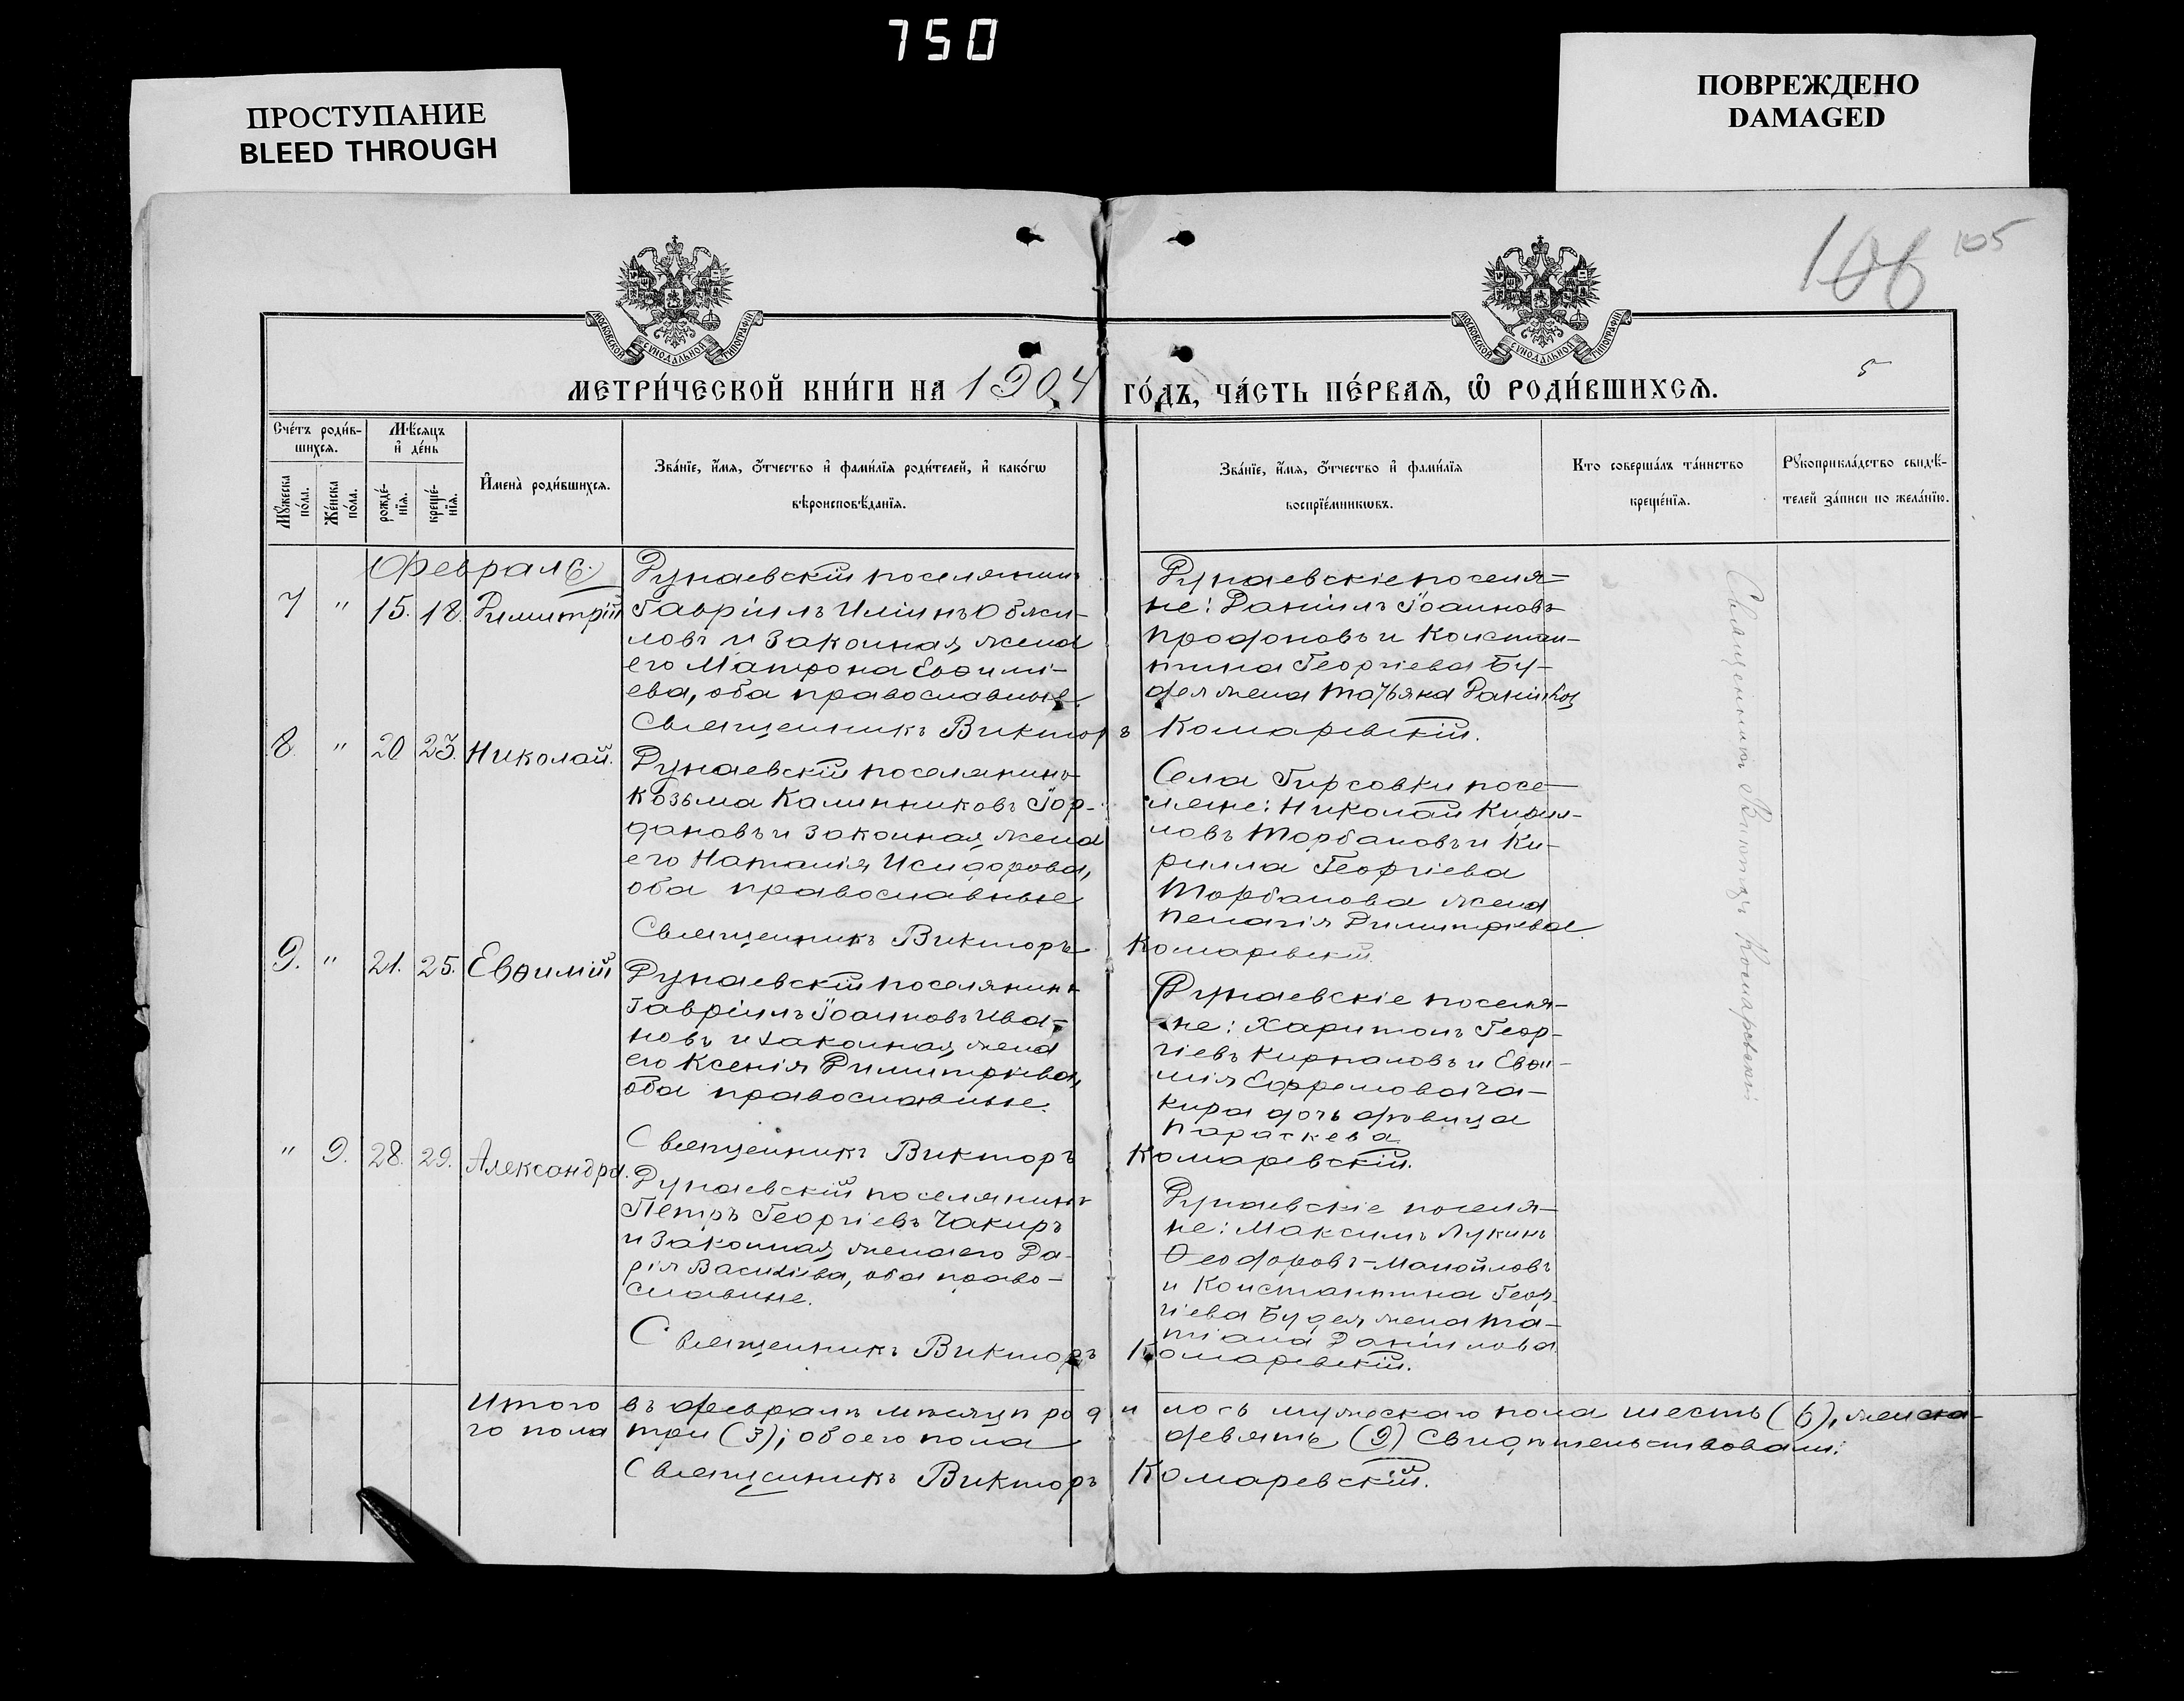 750
ПРОСТУПАНИЕ
BLEED THROUGH
ПОВРЕЖДЕНО
DAMAGED
106 105
МОСКОВСКОЙ СѴНОДАЛЬНОЙ ТИПОГРАФІИ
МОСКОВСКОЙ СѴНОДАЛЬНОЙ ТИПОГРАФІИ
5
МЕТРИ́ЧЕСКОЙ КНИ́ГИ НА 1904 ГО́ДЪ, ЧА́СТЬ ПЕ́РВАѦ, Ѡ҆ РОДИ́ВШИХСѦ.
Сче́тъ роди́в-
шихся.
Мꙋ́жеска по́ла.
Же́нска по́ла.
Мѣ́сяцъ
и҆ де́нь
рожде́-
нїя.
креще́-
нїя.
И҆мена̀ роди́вшихся.
Зва́нїе, и҆́мя, ѻ҆́тчество и҆ фами́лїя роди́телей, и҆ како́гѡ
вѣроисповѣ́данїя.
Зва́нїе, и҆́мя, ѻ҆́тчество и҆ фами́лїя
воспрїе́мникѡвъ.
Кто соверша́лъ та́инство
креще́нїя.
Рꙋкоприкла́дство свидѣ́-
телей за́писи по жела́нїю.
Февраль
7 " 15. 18. Димитрій
Дунаевскій поселянинъ
Гавріилъ Иліинъ
ловъ и законная жена
его Матрона Евѳимі-
ева, оба православные.
Священникъ Викторъ Комаревскій.
Дунаевскіе поселя-
не: Даніилъ Іоанновъ
Продановъ и Констан-
тина Георгіева Бу-
дея жена Татьяна
8. " 20 23. Николай.
Дунаевскій поселянинъ
Козьма Калинниковъ Іор-
дановъ и законная жена
его Наталія Исидорова,
оба православные
Священникъ Викторъ Комаревскій.
Села Гирсовки посе-
ляне: Николай Кирил-
ловъ Торбановъ и Ки-
рилла Георгіева
Торбанова жена
Пелагія Димитріева.
9. " 21. 25. Евѳимій
Дунаевскій поселянинъ
Гавріилъ Іоанновъ Ива-
новъ и законная жена
его Ксенія Димитріева,
оба православные.
Священникъ Викторъ Комаревскій.
Дунаевскіе поселя-
не: Харитонъ Геор-
гіевъ и Евѳи-
мія Ефремова Ча-
кира дочь дѣвица
Параскева
" 9. 28. 29. Александра.
Дунаевскій поселянинъ
Петръ Георгіевъ Чакиръ
и законная жена его Да-
рія Василіева, оба право-
славные.
Священникъ Викторъ Комаревскій.
Дунаевскіе поселя-
не: Максимъ Лукинъ
Ѳеодоровъ-Манойловъ
и Константина Геор-
гіева Будея жена Та-
тіана Даніилова
Священникъ Викторъ Комаревскій
Итого въ февралѣ мѣсяцѣ родилось мужескаго пола шесть (6), женска-
го пола три (3); обоего пола девять (9) Свидѣтельствовали:
Священникъ Викторъ Комаревскій.